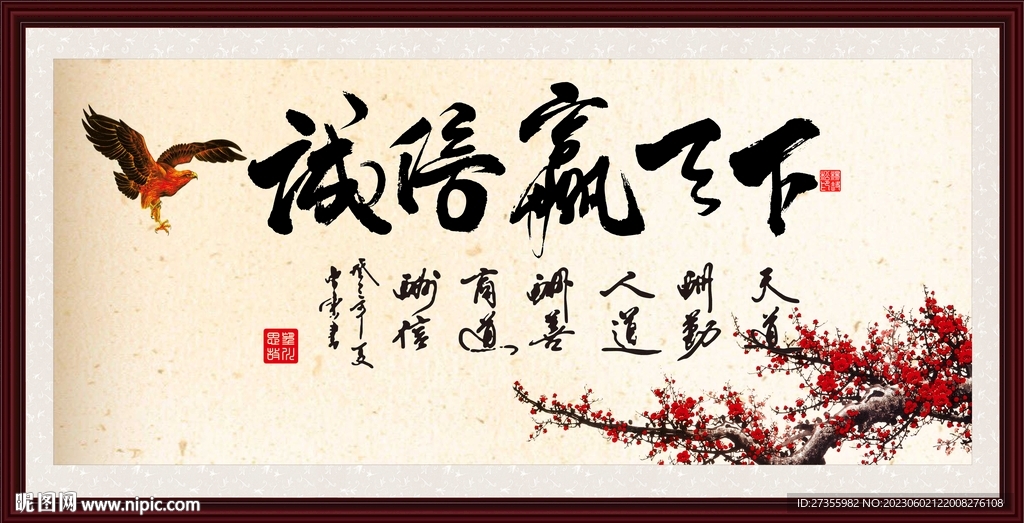 誠信贏天下
天道
酬勤
人道
酬善
商道
酬信
昵图网 www.nipic.com
ID:27355982 NO:20230602122008276108